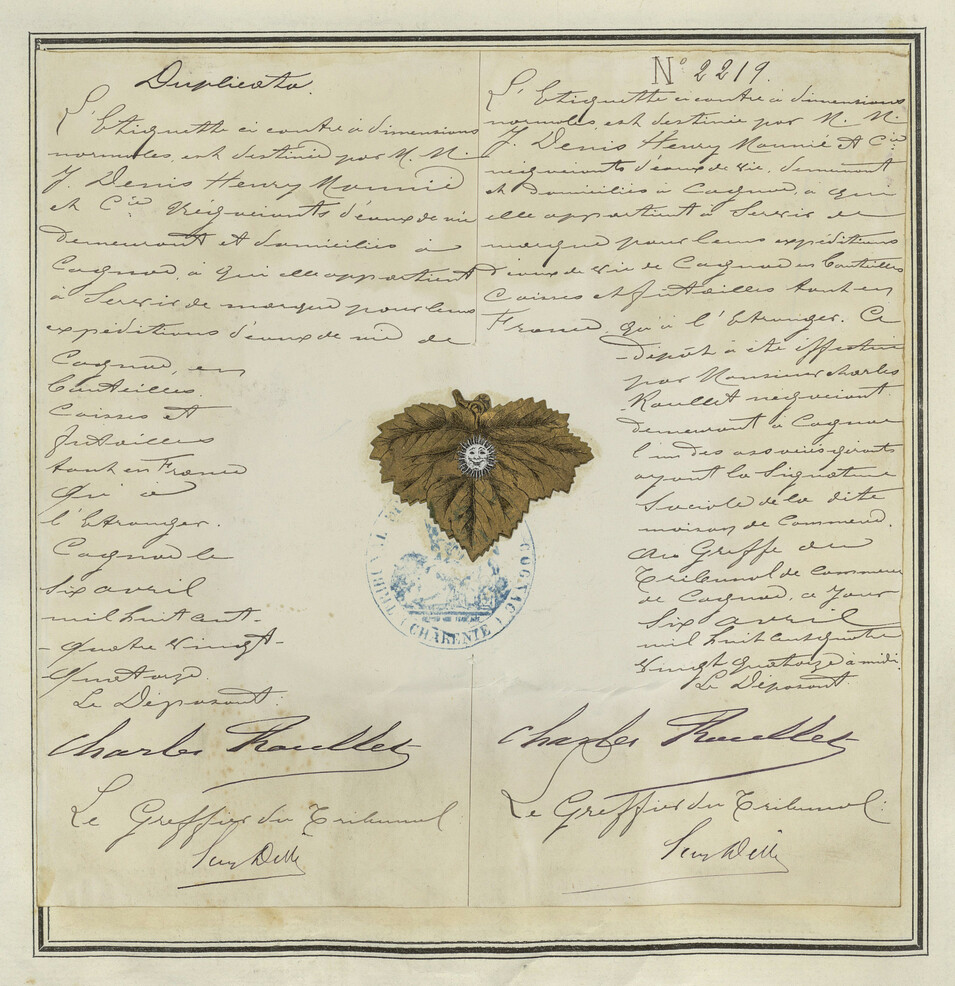 Duplicata.
L'Etiquette ci contre à dimensions
normales, est destinée par M. M.
J. Denis Henry Mounié
et Cie Négociants d'eaux de vie
demeurant et domiciliés à
Cognac, à qui elle appartient
à Servir de marque pour leurs
expéditions d'eaux de vie de
Cognac, en
Bouteilles
Caisses et
futailles
tant en France
qu'à
l'Etranger.
Cognac le
six avril
mil huit cent-
-quatre vingt-
quatorze.
Le Déposant.
Charles Roullet
Le Greffier du Tribunal
N° 2219.
L'Etiquette ci contre à dimensions
normales, est destinée par M. M.
J. Denis Henry Mounié & Cie
négociants d'eaux de vie, demeurant
et domiciliés à Cognac, à qui
elle appartient à Servir de
marque pour leurs expéditions
d'eaux de vie de Cognac en Bouteilles
Caisses et futailles tant en
France, qu'à l'Etranger. Ce
-dépôt a été effectué
par Monsieur Charles
Roullet négociant
demeurant à Cognac
l'un des associés gérants
ayant la Signature
Sociale de la dite
maison de Commerce,
au Greffe du
Tribunal de Commerce
de Cognac, ce jour
six avril
mil huit cent quatre
vingt quatorze à midi.
Le Déposant.
Charles Roullet
Le Greffier du Tribunal.
COGNAC
(CHARENTE)